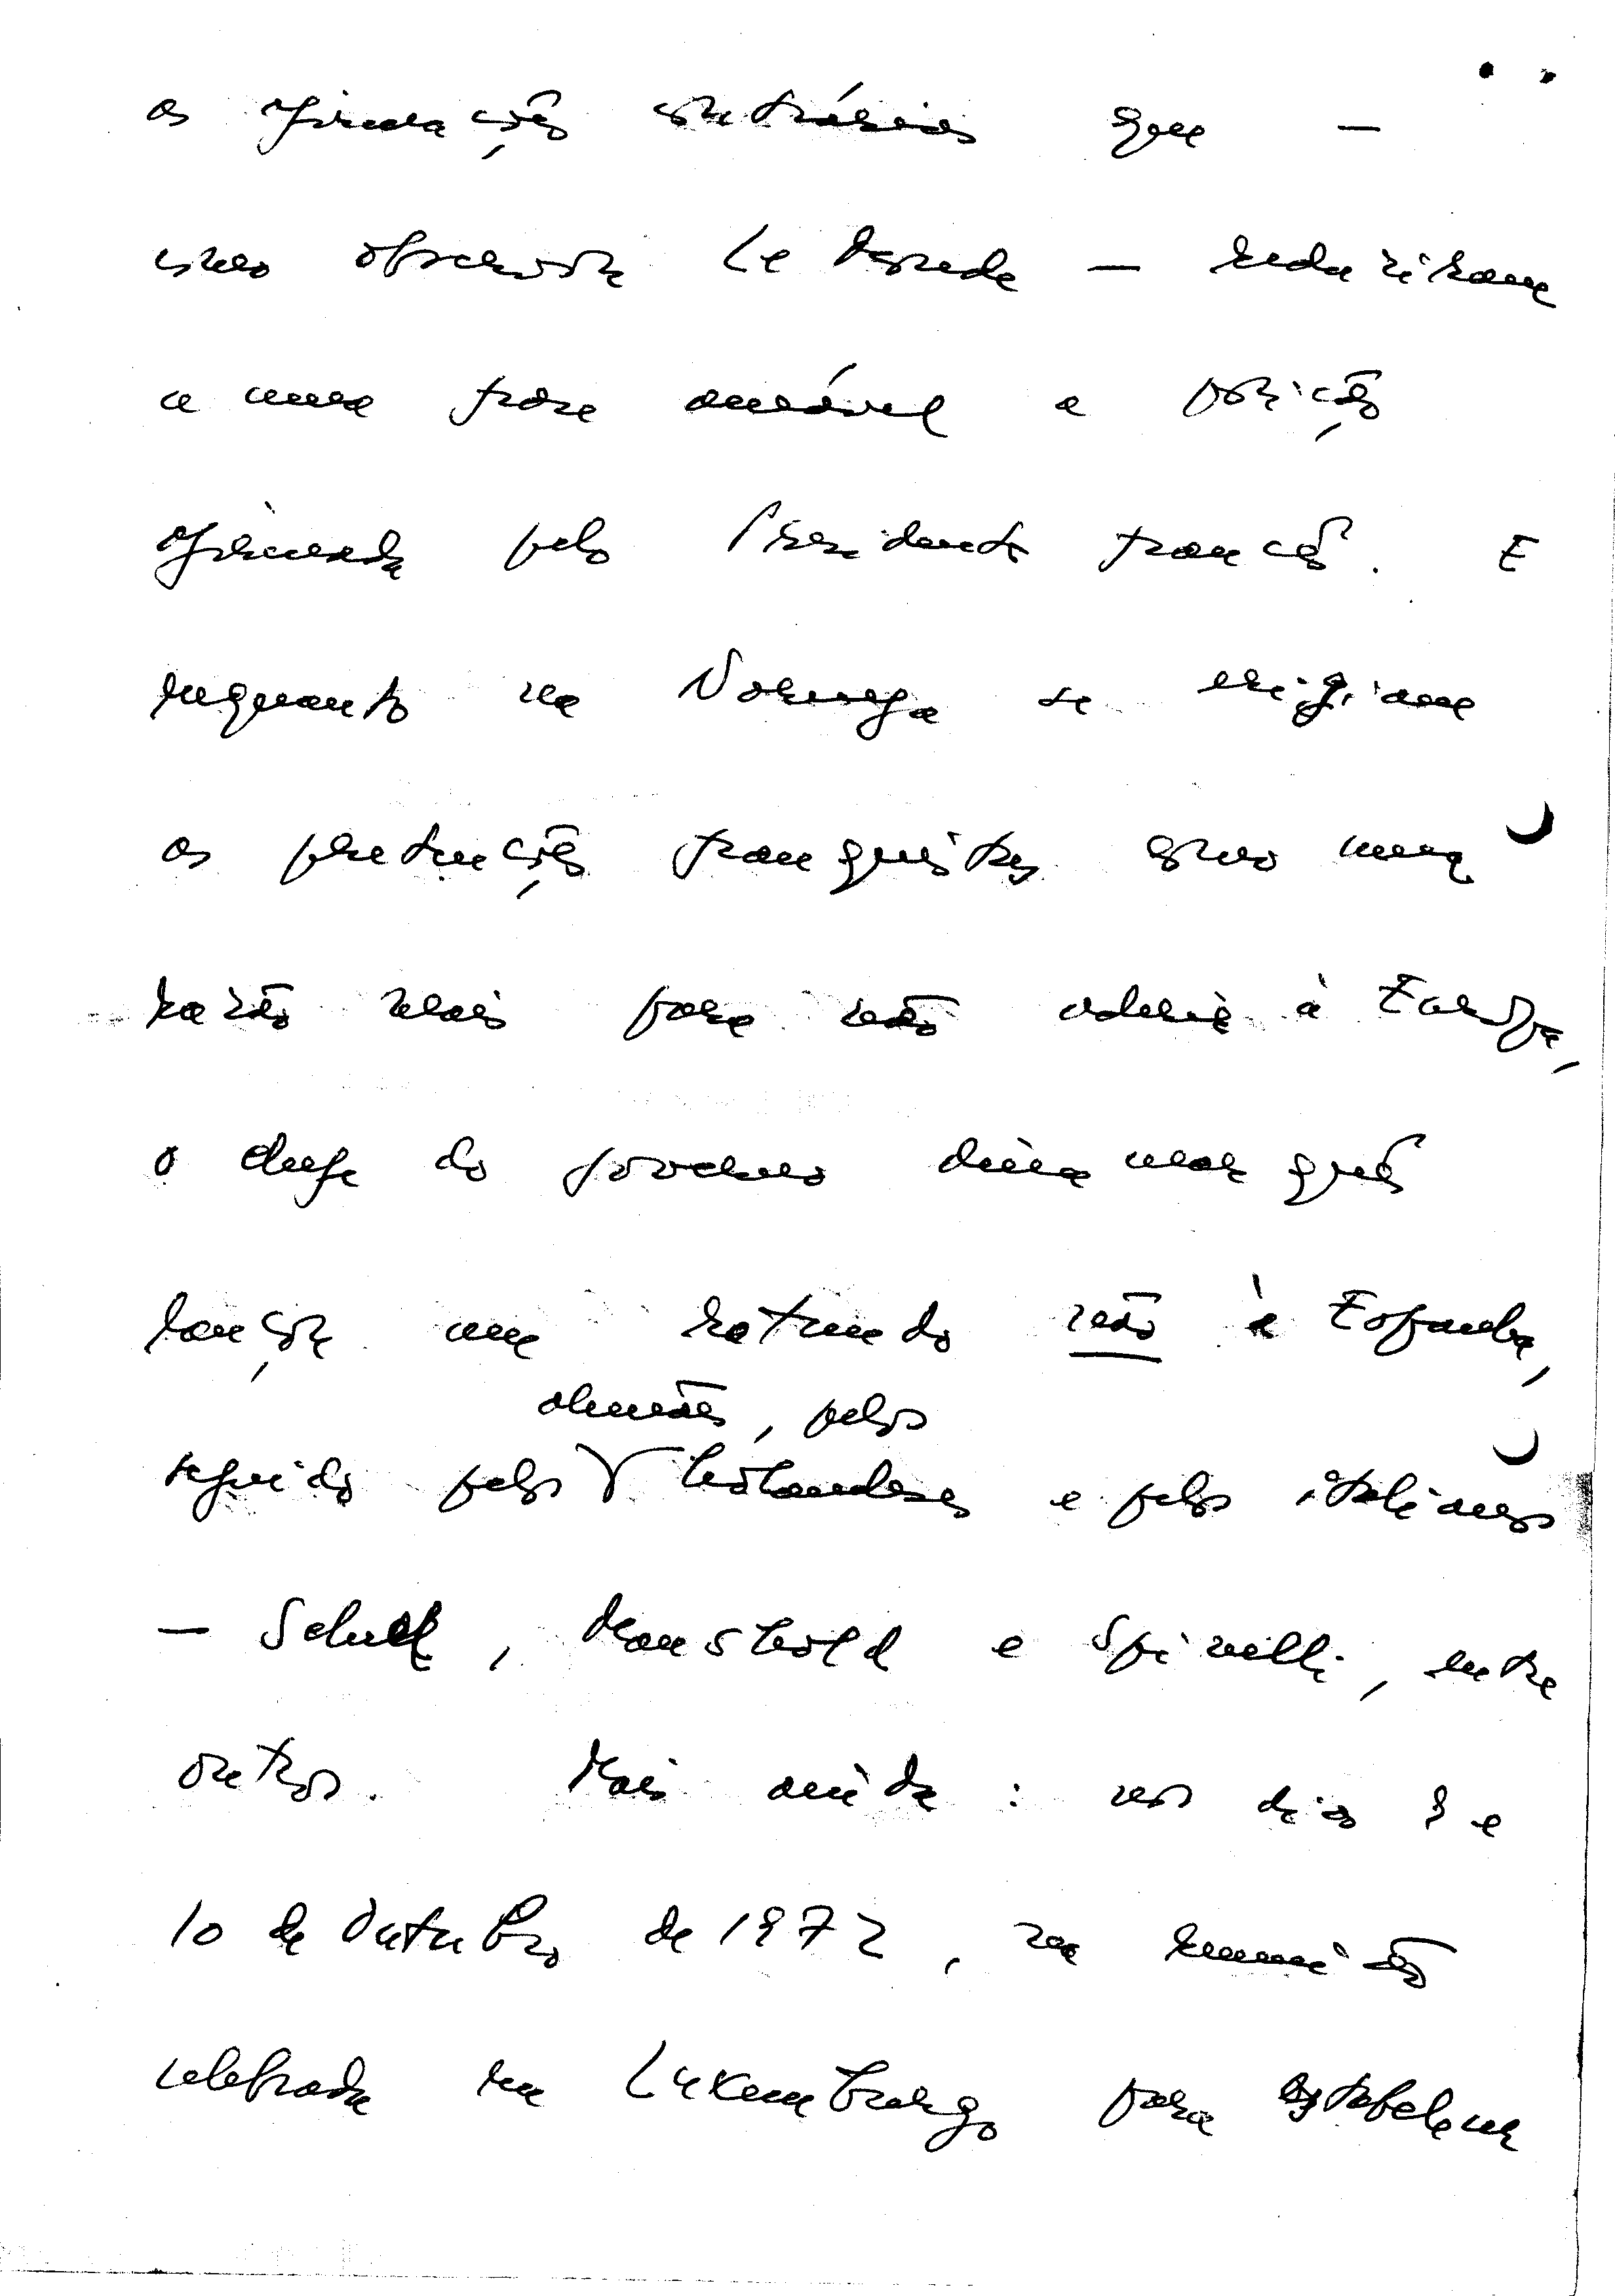 as afirmações contrárias que —
como observou Le Monde — reduziram
a uma frase amável a posição
afirmada pelo Presidente francês. E
enquanto na Noruega se erigiam
as pretensões franquistas como uma
razão mais para não aderir à Europa,
o chefe do governo dinamarquês
lançou um rotundo não à Espanha,
seguido pelos alemães, pelos holandeses e pelos italianos
— Schultz, Mansholt e Spinelli, entre
outros. Mais ainda: nos dias 9 e
10 de Outubro de 1972, na reunião
celebrada em Luxemburgo para estabelecer